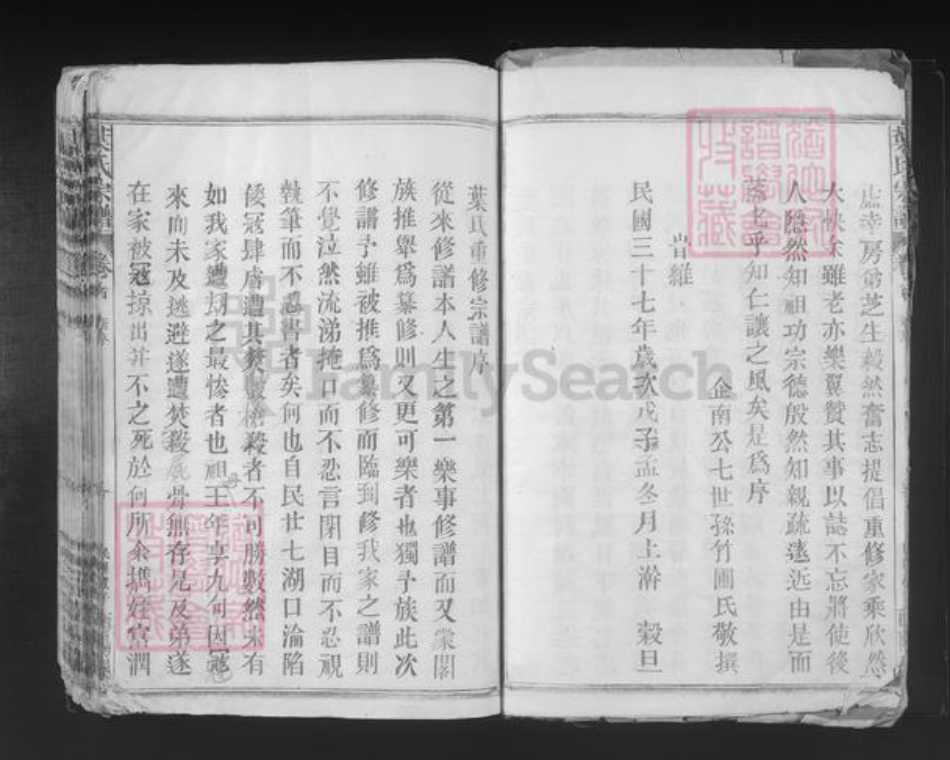 虛幸房弟芝生毅然奮志提倡重修家乘欣然
大快余雖老亦樂翼贊其事以誌不忘將使後
人隱然知祖功宗德殷然知親疏遠近由是而
乎知仁讓之風矣是爲序
企南公七世孫竹圃氏敬撰
旹維
民國三十七年歲次戊子孟冬月上澣 穀旦
葉氏重修宗譜序
從來修譜本人生之第一樂事修譜而又蒙閤
族推舉爲纂修則又更可樂者也獨予族此次
修譜予雖被推爲纂修而臨到修我家之譜則
不覺泣然流涕掩口而不忍言閉目而不忍視
執筆而不忍書者矣何也自民廿七湖口淪陷
倭寇肆虐遭其焚殺者不可勝數然未有
如我家遭刧之最慘者也祖王年享九旬因寇
來而未及逃避遂遭焚殺屍骨無存兄及弟遂
在家被寇掠出并不之死於何所余嫣姪當潤
葉氏宗譜
卷首
FamilySearch